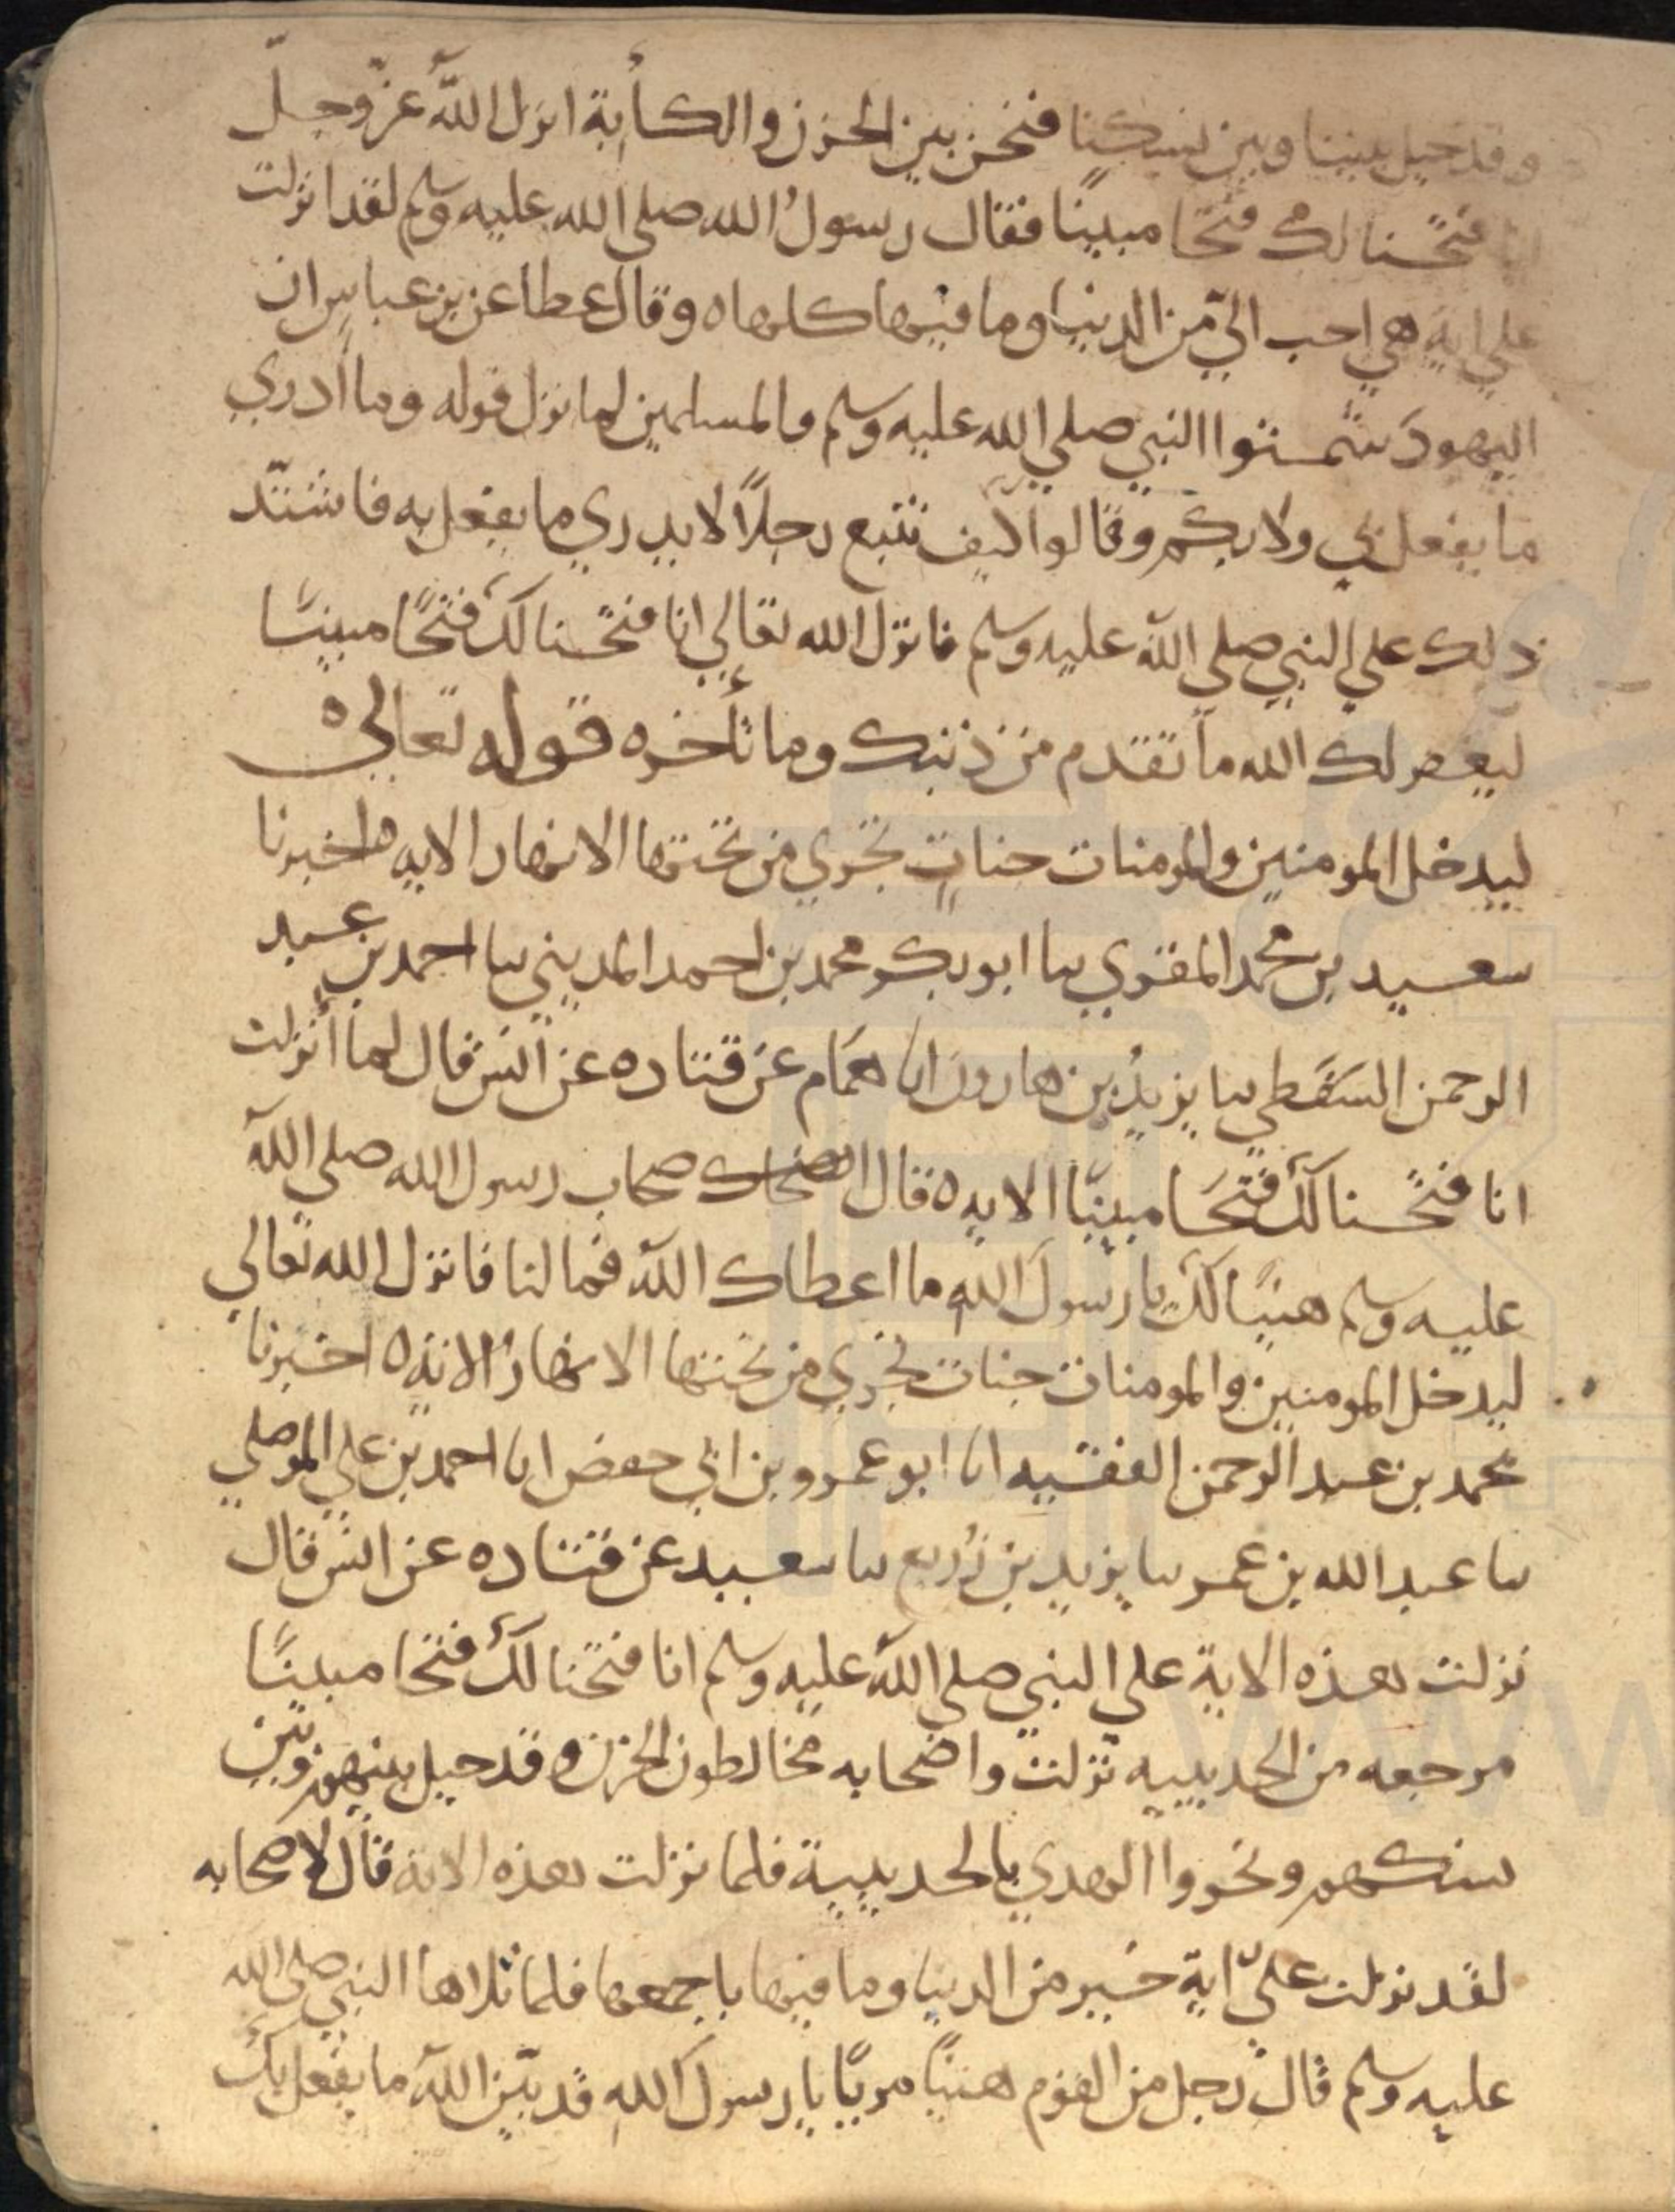 وقد حيل بيننا وبين نسكنا فنحن بين الحزن والكأبة انزل الله عزّ وجلّ
انا فتحنا لك فتحا مبينًا فقال رسولُ الله صلى الله عليه وسلم لقد انزلت
علي اية هي احب اليّ من الدنيا وما فيها كلها ه وقال عطا عن بن عباس ان
اليهودَ شمتوا النبي صلي الله عليه وسلم والمسلمين لما نزل قوله وما أدري
ما يفعل بي ولا بكم وقالوا كيف نتبع رجلاً لا يدري ما يفعل به فاشتدّ
ذلك علي النبي صلي الله عليه وسلم فانزل الله تعالي انا فتحنا لك فتحًا مبينًا
ليغفر لك الله ما تقدم من ذنبك وما تأخر ه قوله تعالي ه
ليدخل المومنين والمومنات جناتٍ تجري من تحتها الانهار الايه ه اخبرنا
سعيد بن محمد المقري سا ابو بكر محمد بن احمد المديني سا احمد بن عبد
الرحمن السَقَطي سا يزيدُ بن هارون ابا همام عن قتاده عن انس قال لما أنزلت
انا فتحنا لك فتحًا مبينًا الايه ه قال اصحاب رسول الله صلي الله
عليه وسلم هنيًا لك يا رسولَ الله ما اعطاك الله فما لنا فانزل الله تعالي
ليدخل المومنين والمومنات جنات تجري من تحتها الانهارُ الايه ه اخبرنا
محمد بن عبد الرحمن الفقيه انا ابو عمرو بن ابي حفص ابا احمد بن علي الموصلي
سا عبد الله بن عمر سا يزيد بن زُريع سا سعيد عن قتاده عن انس قال
نزلت هذه الاية علي النبي صلي الله عليه وسلم انا فتحنا لك فتحا مبينًا
مرجعه من الحديبيه نزلت واصحابه مخالطون الحزن وقد حيل بينهم وبين
نسكهم ونحروا الهدي بالحديبية فلما نزلت هذه الاية قال لاصحابه
لقد نزلت عليّ اية خير من الدنيا وما فيها باجمعها فلما تلاها النبي صلي الله
عليه وسلم قال رجل من القوم هنيًا مريًا يا رسولَ الله قد بيّن الله ما يفعل بك